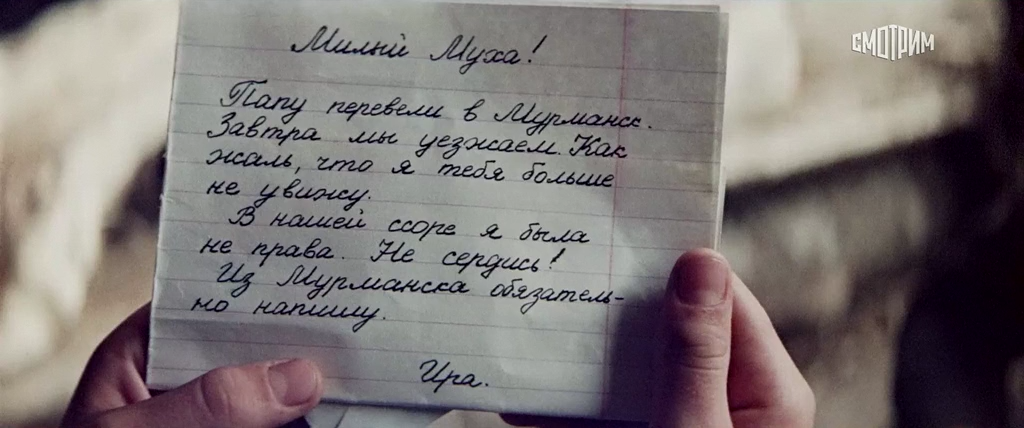 СМОТРИМ
Милый Муха!
Папу перевели в Мурманск.
Завтра мы уезжаем. Как
жаль, что я тебя больше
не увижу.
В нашей ссоре я была
не права. Не сердись!
Из Мурманска обязатель-
но напишу.
Ира.